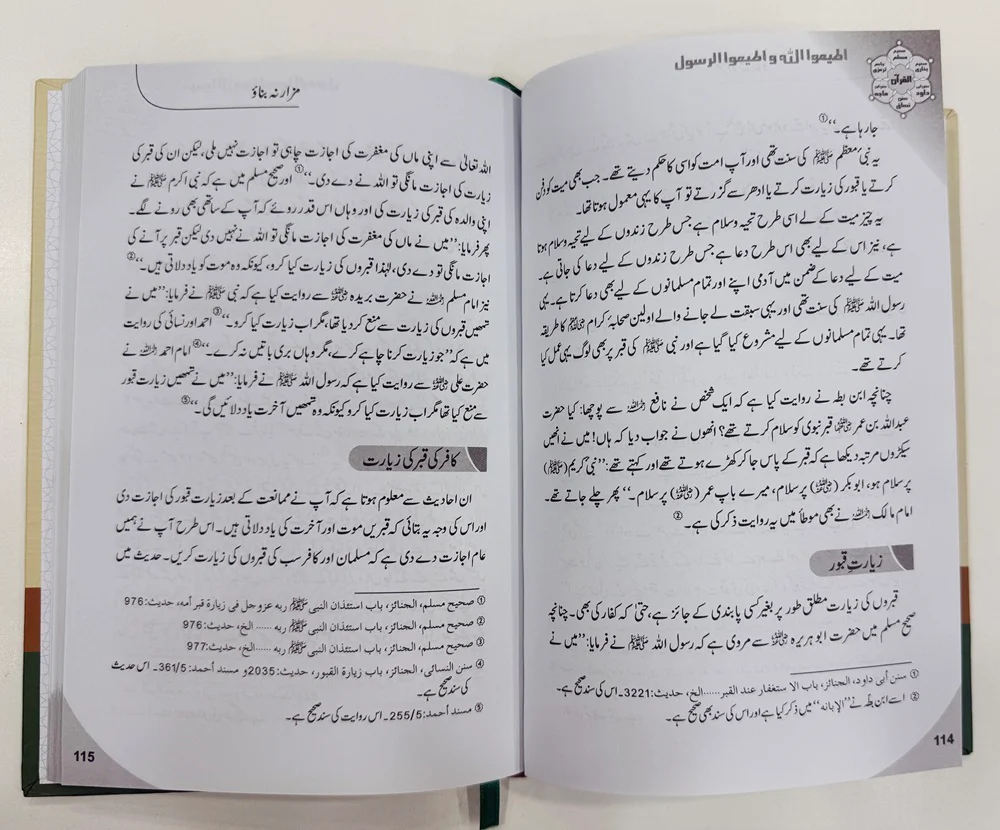 اطیعوا اللہ و اطیعوا الرسول
صحیح مسلم
صحیح بخاری
جامع ترمذی
القرآن
سنن ابی داود
سنن ابن ماجہ
سنن نسائی
جا رہا ہے۔“①
یہ نبیٔ معظم ﷺ کی سنت تھی اور آپ امت کو اسی کا حکم دیتے تھے۔ جب بھی میت کو دفن
کرتے یا قبور کی زیارت کرتے یا ادھر سے گزرتے تو آپ کا یہی معمول ہوتا تھا۔
یہ چیز میت کے لے اسی طرح تحیہ وسلام ہے جس طرح زندوں کے لیے تحیہ وسلام ہوتا
ہے، نیز اس کے لیے بھی اس طرح دعا ہے جس طرح زندوں کے لیے دعا کی جاتی ہے۔
میت کے لیے دعا کے ضمن میں آدمی اپنے اور تمام مسلمانوں کے لیے بھی دعا کرتا ہے۔ یہی
رسول اللہ ﷺ کی سنت تھی اور یہی سبقت لے جانے والے اولین صحابۂ کرام ﷢ کا طریقہ
تھا۔ یہی تمام مسلمانوں کے لیے مشروع کیا گیا ہے اور نبی ﷺ کی قبر پر بھی لوگ یہی عمل کیا
کرتے تھے۔
چنانچہ ابن بطہ نے روایت کیا ہے کہ ایک شخص نے نافع رحمہ اللہ سے پوچھا: کیا حضرت
عبداللہ بن عمر رضی اللہ عنہما قبر نبوی کو سلام کرتے تھے؟ انھوں نے جواب دیا کہ ہاں! میں نے انھیں
سیکڑوں مرتبہ دیکھا ہے کہ قبر کے پاس جا کر کھڑے ہوتے تھے اور کہتے تھے: ”نبی کریم (ﷺ)
پر سلام ہو، ابوبکر (رضی اللہ عنہ) پر سلام، میرے باپ عمر (رضی اللہ عنہ) پر سلام۔“ پھر چلے جاتے تھے۔
امام مالک رحمہ اللہ نے بھی موطأ میں یہ روایت ذکر کی ہے۔②
زیارتِ قبور
قبروں کی زیارت مطلق طور پر بغیر کسی پابندی کے جائز ہے، حتیٰ کہ کفار کی بھی۔ چنانچہ
صحیح مسلم میں حضرت ابوہریرہ رضی اللہ عنہ سے مروی ہے کہ رسول اللہ ﷺ نے فرمایا: ”میں نے
① سنن أبی داود، الجنائز، باب الاستغفار عند القبر......الخ، حدیث:3221۔ اس کی سند صحیح ہے۔
② اسے ابن بطہ نے ”الإبانه“ میں ذکر کیا ہے اور اس کی سند بھی صحیح ہے۔
114
مزار نہ بناؤ
اللہ تعالیٰ سے اپنی ماں کی مغفرت کی اجازت چاہی تو اجازت نہیں ملی، لیکن ان کی قبر کی
زیارت کی اجازت مانگی تو اللہ نے دے دی۔“① اور صحیح مسلم میں ہے کہ نبی اکرم ﷺ نے
اپنی والدہ کی قبر کی زیارت کی اور وہاں اس قدر روئے کہ آپ کے ساتھی بھی رونے لگے۔
پھر فرمایا: ”میں نے ماں کی مغفرت کی اجازت مانگی تو اللہ نے نہیں دی لیکن قبر پر آنے کی
اجازت مانگی تو دے دی، لہٰذا قبروں کی زیارت کیا کرو، کیونکہ وہ موت کو یاد دلاتی ہیں۔“②
نیز امام مسلم رحمہ اللہ نے حضرت بریدہ رضی اللہ عنہ سے روایت کیا ہے کہ نبی ﷺ نے فرمایا: ”میں نے
تمھیں قبروں کی زیارت سے منع کر دیا تھا، مگر اب زیارت کیا کرو۔“③ احمد اور نسائی کی روایت
میں ہے کہ ”جو زیارت کرنا چاہے کرے، مگر وہاں بری باتیں نہ کرے۔“④ امام احمد رحمہ اللہ نے
حضرت علی رضی اللہ عنہ سے روایت کیا ہے کہ رسول اللہ ﷺ نے فرمایا: ”میں نے تمھیں زیارت قبور
سے منع کیا تھا مگر اب زیارت کیا کرو کیونکہ وہ تمھیں آخرت یاد دلائیں گی۔“⑤
کافر کی قبر کی زیارت
ان احادیث سے معلوم ہوتا ہے کہ آپ نے ممانعت کے بعد زیارت قبور کی اجازت دی
اور اس کی وجہ یہ بتائی کہ قبریں موت اور آخرت کی یاد دلاتی ہیں۔ اس طرح آپ نے ہمیں
عام اجازت دے دی ہے کہ مسلمان اور کافر سب کی قبروں کی زیارت کریں۔ حدیث میں
① صحیح مسلم، الجنائز، باب استئذان النبی ﷺ ربه عزوجل فی زیارة قبر أمه، حدیث: 976
② صحیح مسلم، الجنائز، باب استئذان النبی ﷺ ربه ...... الخ، حدیث: 976
③ صحیح مسلم، الجنائز، باب استئذان النبی ﷺ ربه ...... الخ، حدیث:977
④ سنن النسائی، الجنائز، باب زیارة القبور، حدیث:2035و مسند أحمد:361/5۔ اس حدیث
کی سند صحیح ہے۔
⑤ مسند أحمد:255/5۔ اس روایت کی سند صحیح ہے۔
115